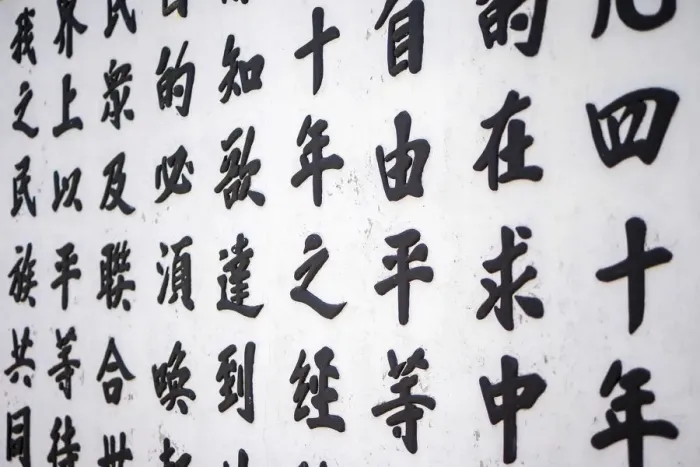 凡四十年
的在求中
自由平等
十年之經
知欲達到
的必須喚起
民衆及聯合世
界上以平等待
我之民族共同